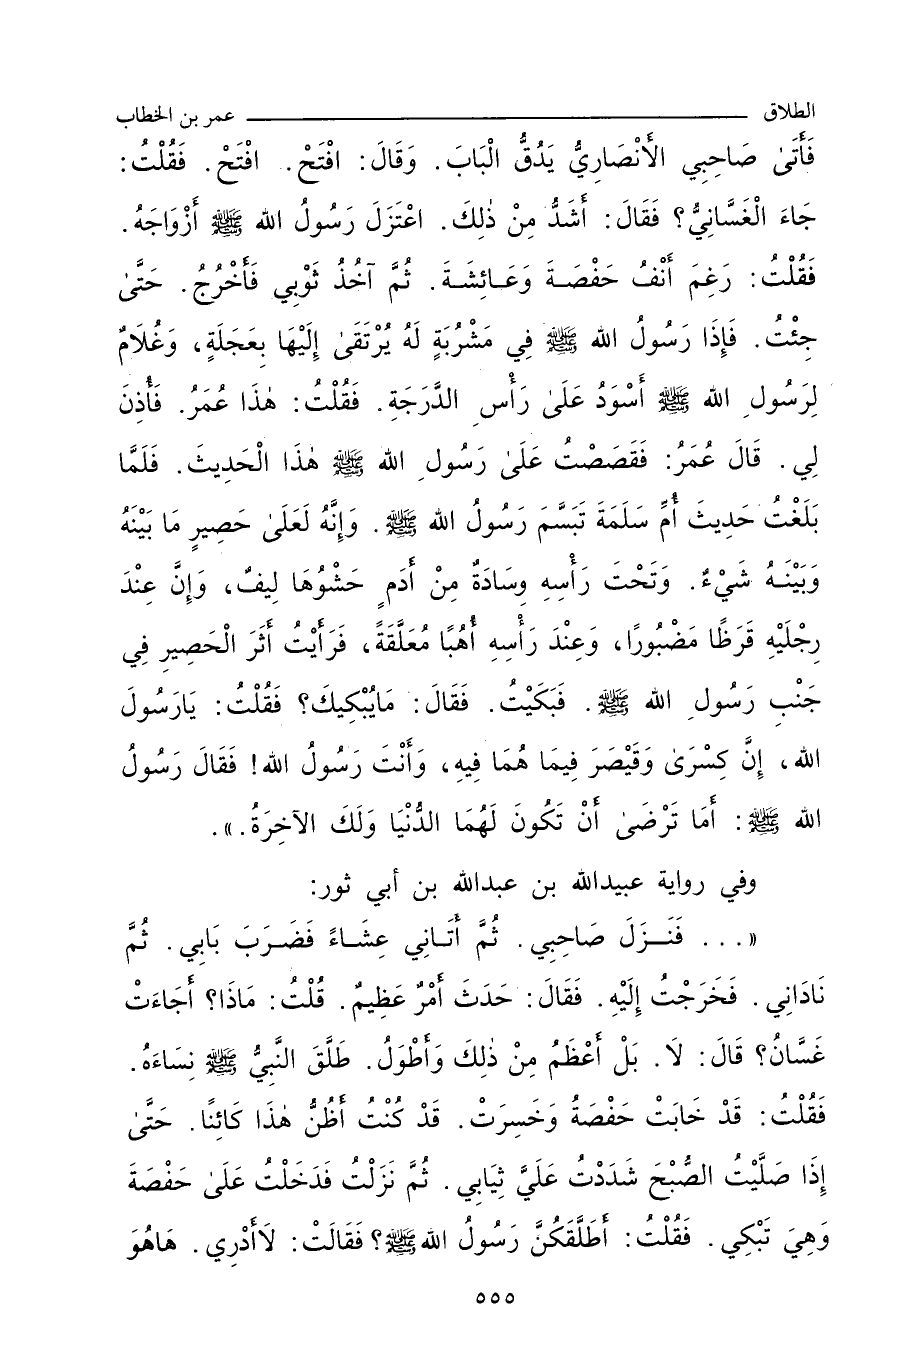 الطلاق ـــــــ عمر بن الخطاب
فَأَتَىٰ صَاحِبِي الأَنْصَارِيُّ يَدُقُّ الْبَابَ. وَقَالَ: افْتَحْ. افْتَحْ. فَقُلْتُ:
جَاءَ الْغَسَّانِيُّ؟ فَقَالَ: أَشَدُّ مِنْ ذٰلِكَ. اعْتَزَلَ رَسُولُ الله ﷺ أَزْوَاجَهُ.
فَقُلْتُ: رَغِمَ أَنْفُ حَفْصَةَ وَعَائِشَةَ. ثُمَّ آخُذُ ثَوْبِي فَأَخْرُجُ. حَتَّىٰ
جِئْتُ. فَإِذَا رَسُولُ الله ﷺ فِي مَشْرُبَةٍ لَهُ يُرْتَقَىٰ إِلَيْهَا بِعَجَلَةٍ، وَغُلَامٌ
لِرَسُولِ الله ﷺ أَسْوَدُ عَلَىٰ رَأْسِ الدَّرَجَةِ. فَقُلْتُ: هٰذَا عُمَرُ. فَأُذِنَ
لِي. قَالَ عُمَرُ: فَقَصَصْتُ عَلَىٰ رَسُولِ الله ﷺ هٰذَا الْحَدِيثَ. فَلَمَّا
بَلَغْتُ حَدِيثَ أُمِّ سَلَمَةَ تَبَسَّمَ رَسُولُ الله ﷺ. وَإِنَّهُ لَعَلَىٰ حَصِيرٍ مَا بَيْنَهُ
وَبَيْنَهُ شَيْءٌ. وَتَحْتَ رَأْسِهِ وِسَادَةٌ مِنْ أَدَمٍ حَشْوُهَا لِيفٌ، وَإِنَّ عِنْدَ
رِجْلَيْهِ قَرَظًا مَضْبُورًا، وَعِنْدَ رَأْسِهِ أُهُبًا مُعَلَّقَةً، فَرَأَيْتُ أَثَرَ الْحَصِيرِ فِي
جَنْبِ رَسُولِ الله ﷺ. فَبَكَيْتُ. فَقَالَ: مَايُبْكِيكَ؟ فَقُلْتُ: يَارَسُولَ
الله، إِنَّ كِسْرَىٰ وَقَيْصَرَ فِيمَا هُمَا فِيهِ، وَأَنْتَ رَسُولُ الله! فَقَالَ رَسُولُ
الله ﷺ: أَمَا تَرْضَىٰ أَنْ تَكُونَ لَهُمَا الدُّنْيَا وَلَكَ الآخِرَةُ.».
وفي رواية عبيدالله بن عبدالله بن أبي ثور:
«... فَنَزَلَ صَاحِبِي. ثُمَّ أَتَانِي عِشَاءً فَضَرَبَ بَابِي. ثُمَّ
نَادَانِي. فَخَرَجْتُ إِلَيْهِ. فَقَالَ: حَدَثَ أَمْرٌ عَظِيمٌ. قُلْتُ: مَاذَا؟ أَجَاءَتْ
غَسَّانُ؟ قَالَ: لَا. بَلْ أَعْظَمُ مِنْ ذٰلِكَ وَأَطْوَلُ. طَلَّقَ النَّبِيُّ ﷺ نِسَاءَهُ.
فَقُلْتُ: قَدْ خَابَتْ حَفْصَةُ وَخَسِرَتْ. قَدْ كُنْتُ أَظُنُّ هٰذَا كَائِنًا. حَتَّىٰ
إِذَا صَلَّيْتُ الصُّبْحَ شَدَدْتُ عَلَيَّ ثِيَابِي. ثُمَّ نَزَلْتُ فَدَخَلْتُ عَلَىٰ حَفْصَةَ
وَهِيَ تَبْكِي. فَقُلْتُ: أَطَلَّقَكُنَّ رَسُولُ الله ﷺ؟ فَقَالَتْ: لَاأَدْرِي. هَاهُوَ
٥٥٥